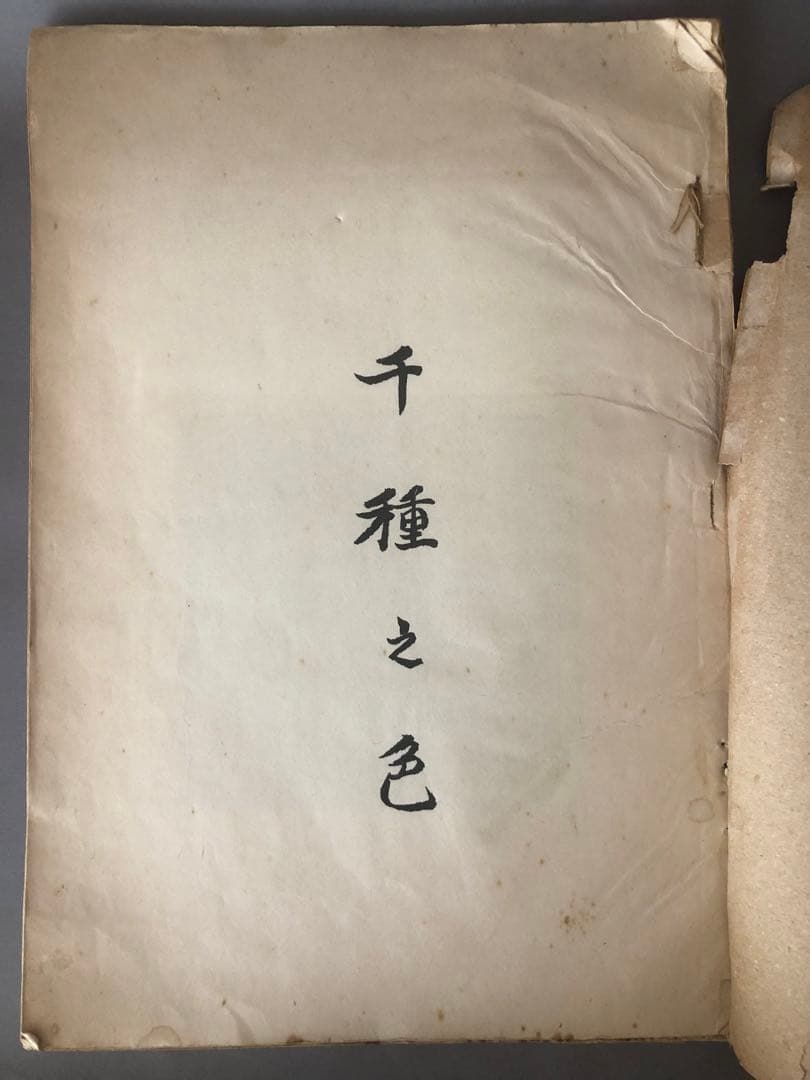 千種之色